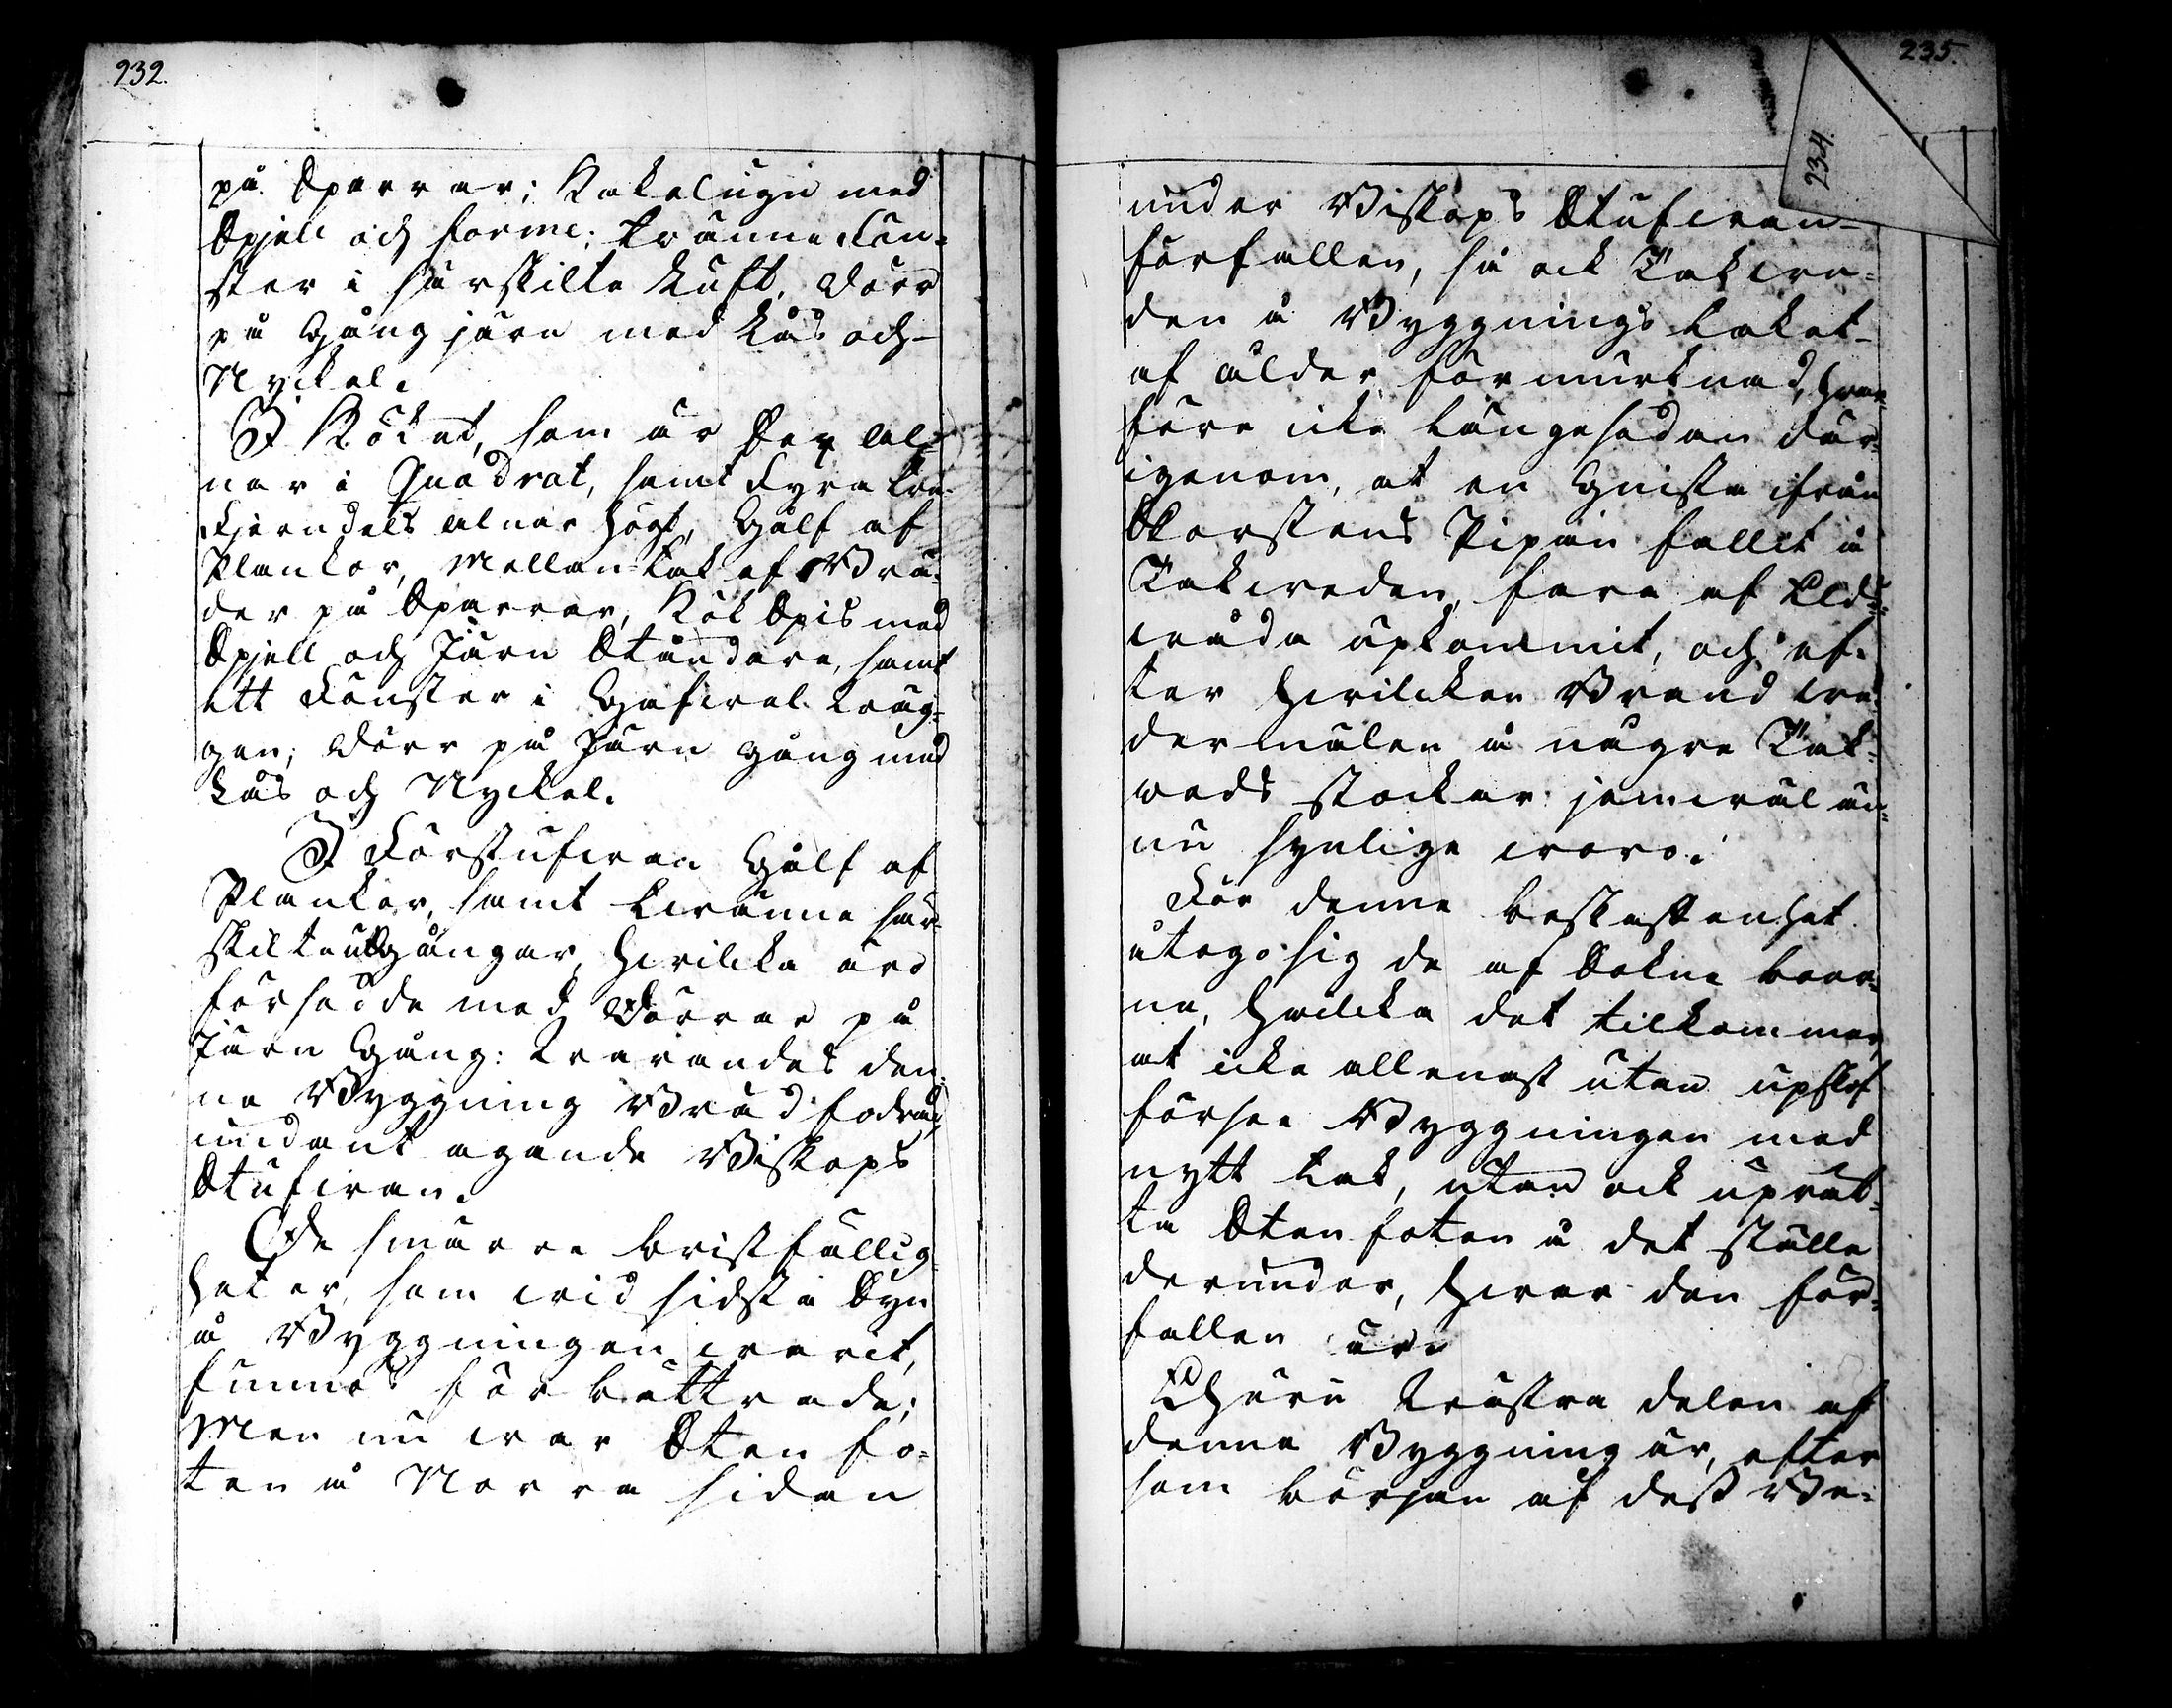 232.
på Sparrar; Kakelugn med
Spjell och forme; Tränne Fön-
ster i särskilte Luft, Dörr
på Gång järn med Lås och
Nyckel.
I Köket, som är Sex al-
nar i Quadrat, samt Fyra tre
Fjerndels alnar högt, Gålf af
Plankor, Mellan-Tak af Brä-
der på Sparrar, Kök Spis med
Spjell och Järn Ståndare, samt
ett Fönster i Gafwel wäg-
gen; Dörr på Järn gång med
Lås och Nyckel.
I Förstufwan Gålf af
Plankor, samt twänne sär-
skilte utgångar, hwilcka äro
försedde med Dörrar på
Järn Gång: warandes den-
na Byggning Bräd fodrad,
undant agande Biskops
Stufwan.
De smärre bristfällig-
heter, som wid sidsta Syn
å Byggningen warit,
funnos förbättrade;
Men nu war Sten fo-
ten å Norra sidan
235.
234.
under Biskops Stufwan
förfallen, så ock Takwe-
den å Byggnings Taket
af ålder förmurknad, hwar-
före icke längesedan där-
igenom, at en Gnista ifrån
Skorstens Pipan fallit å
Takweden, fara af Elds-
wåda upkommit, och ef-
ter hwilcken Brand wa-
dermålen å någre Tak-
weds stockar jemwäl än-
nu synlige woro.
För denne beskaffenhet
åtogo sig de af Sokne boer-
ne, hwilcka det tilkommer,
at icke allenast utan upskof
förse Byggningen med
nytt tak, utan ock uprät-
ta Stenfoten å det ställe
derunder, hwar den för-
fallen är.
Ehuru Wästra delen af
denna Byggning är, efter
som början af dess Be-